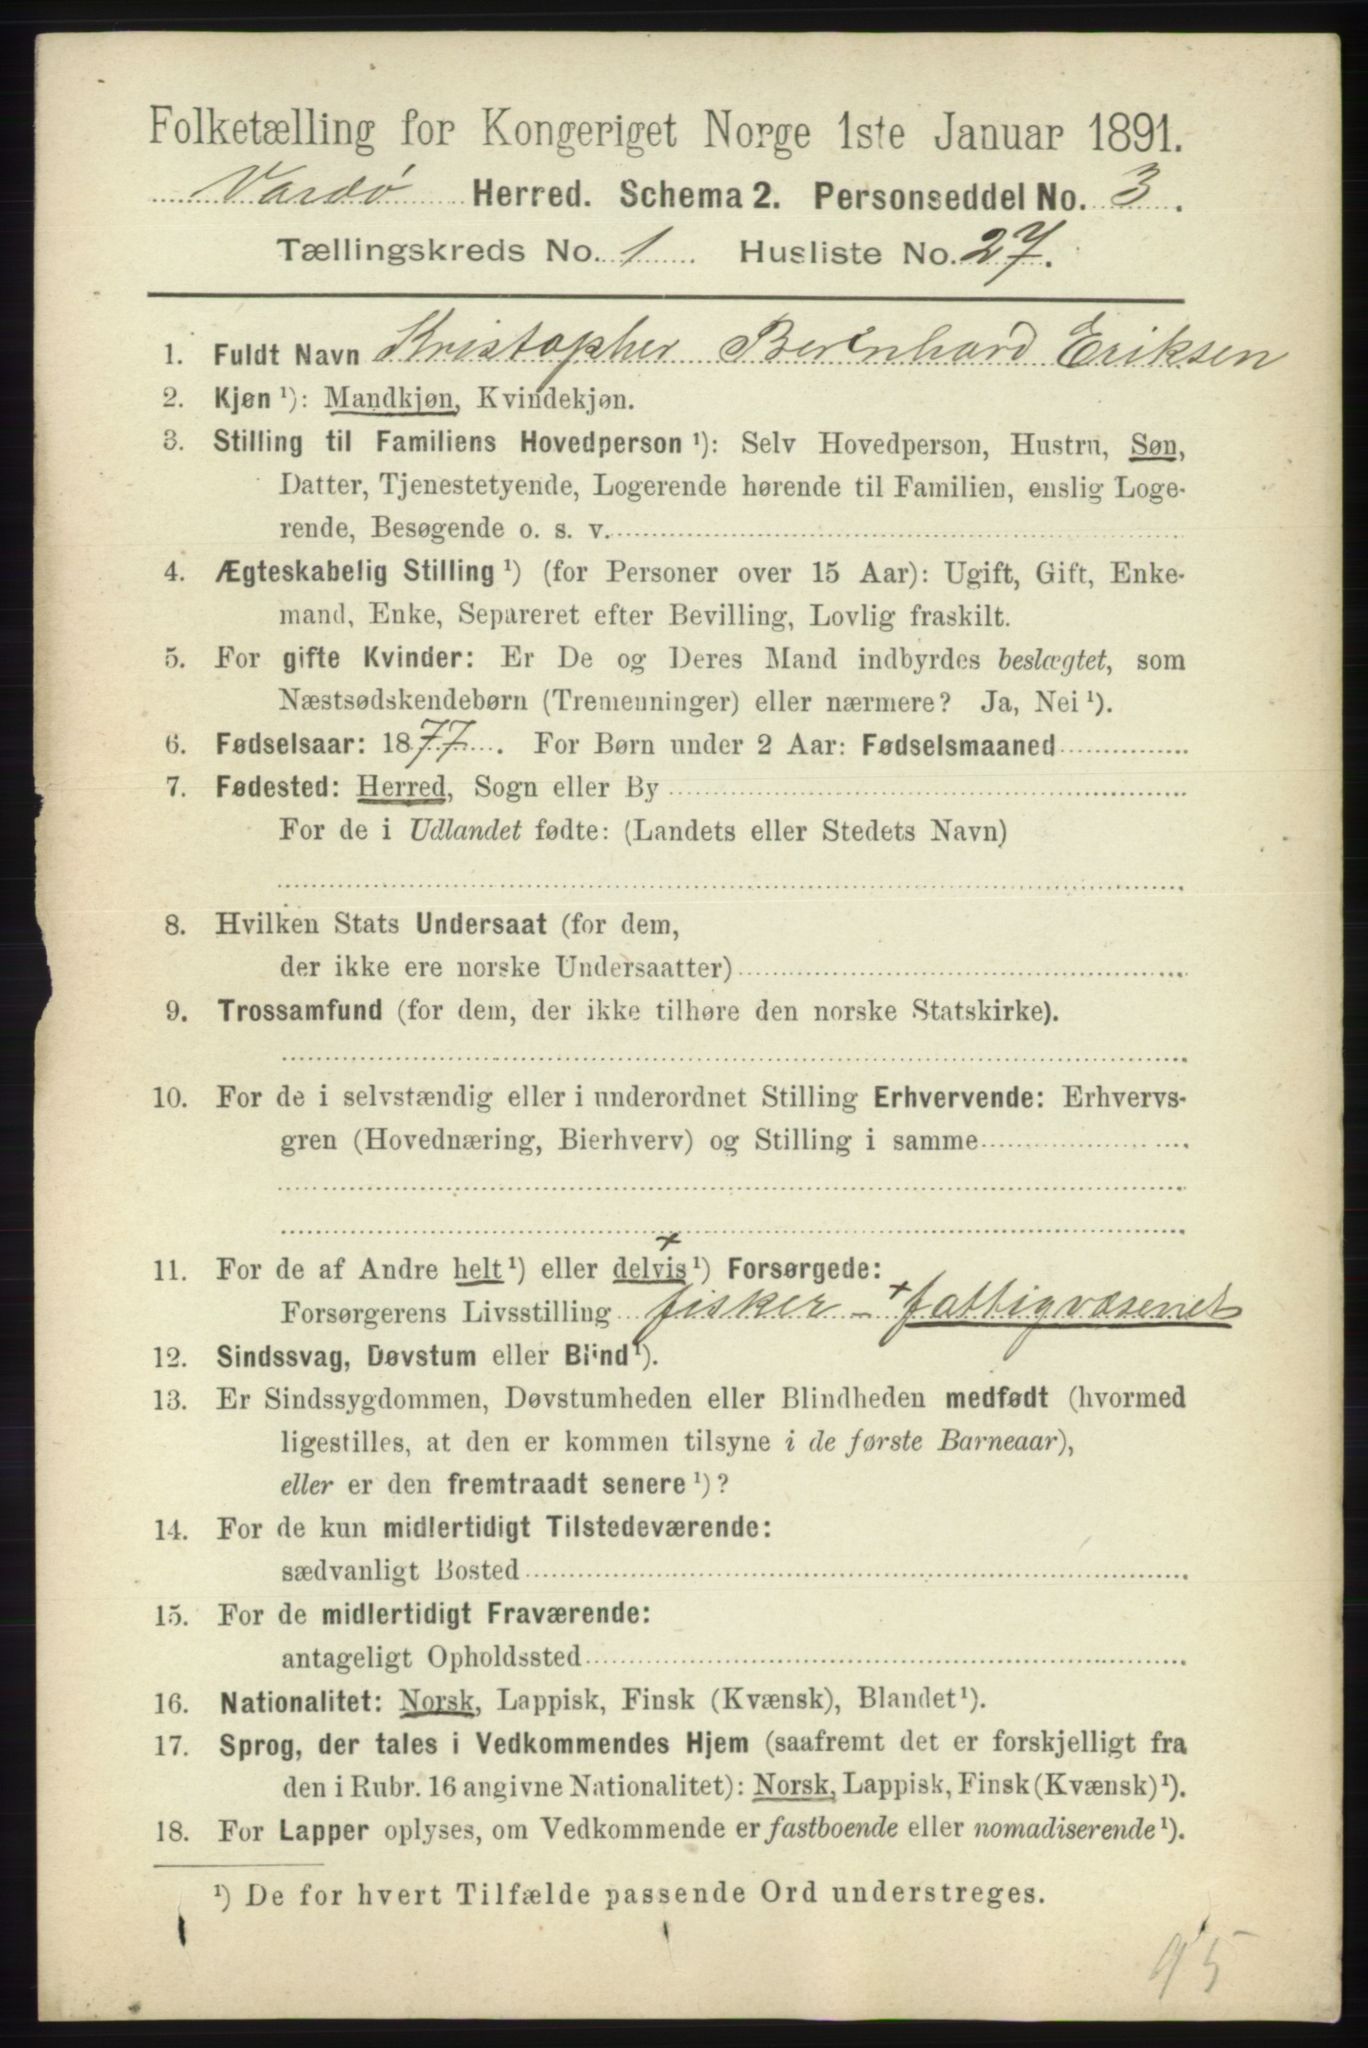 Folketælling for Kongeriget Norge 1ste Januar 1891.
Vardø Herred. Schema 2. Personseddel No. 3.
Tællingskreds No. 1 Husliste No. 27.
1. Fuldt Navn Kristopher Berinhard Eriksen
2. Kjøn ¹): Mandkjøn, Kvindekjøn.
3. Stilling til Familiens Hovedperson ¹): Selv Hovedperson, Hustru, Søn,
Datter, Tjenestetyende, Logerende hørende til Familien, enslig Loge-
rende, Besøgende o. s. v.
4. Ægteskabelig Stilling ¹) (for Personer over 15 Aar): Ugift, Gift, Enke-
mand, Enke, Separeret efter Bevilling, Lovlig fraskilt.
5. For gifte Kvinder: Er De og Deres Mand indbyrdes beslægtet, som
Næstsødskendebørn (Tremenninger) eller nærmere? Ja, Nei ¹).
6. Fødselsaar: 1877. For Børn under 2 Aar: Fødselsmaaned
7. Fødested: Herred, Sogn eller By
For de i Udlandet fødte: (Landets eller Stedets Navn)
8. Hvilken Stats Undersaat (for dem,
der ikke ere norske Undersaatter)
9. Trossamfund (for dem, der ikke tilhøre den norske Statskirke).
10. For de i selvstændig eller i underordnet Stilling Erhvervende: Erhvervs-
gren (Hovednæring, Bierhverv) og Stilling i samme
+
11. For de af Andre helt ¹) eller delvis ¹) Forsørgede:
Forsørgerens Livsstilling fisker - + fattigvæsenet
12. Sindssvag, Døvstum eller Blind ¹).
13. Er Sindssygdommen, Døvstumheden eller Blindheden medfødt (hvormed
ligestilles, at den er kommen tilsyne i de første Barneaar),
eller er den fremtraadt senere ¹)?
14. For de kun midlertidigt Tilstedeværende:
sædvanligt Bosted
15. For de midlertidigt Fraværende:
antageligt Opholdssted
16. Nationalitet: Norsk, Lappisk, Finsk (Kvænsk), Blandet ¹).
17. Sprog, der tales i Vedkommendes Hjem (saafremt det er forskjelligt fra
den i Rubr. 16 angivne Nationalitet): Norsk, Lappisk, Finsk (Kvænsk) ¹).
18. For Lapper oplyses, om Vedkommende er fastboende eller nomadiserende ¹).
¹) De for hvert Tilfælde passende Ord understreges.
95